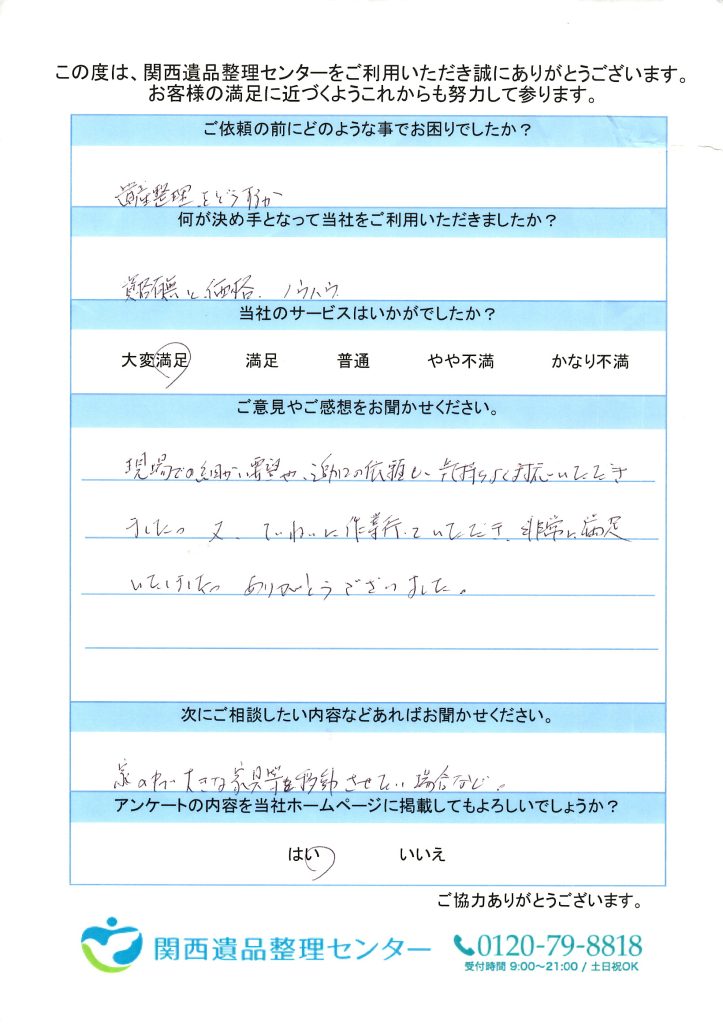 この度は、関西遺品整理センターをご利用いただき誠にありがとうございます。
お客様の満足に近づくようこれからも努力して参ります。
ご依頼の前にどのような事でお困りでしたか？
遺産整理をどうするか
何が決め手となって当社をご利用いただきましたか？
資格有無と価格、ノウハウ
当社のサービスはいかがでしたか？
大変満足 満足 普通 やや不満 かなり不満
ご意見やご感想をお聞かせください。
現場での細かい要望や、追加の依頼も、気持ちよく対応いただき
ました。又、ていねいに作業行っていただき、非常に満足
いたしました。ありがとうございました。
次にご相談したい内容などあればお聞かせください。
家の中で大きな家具等を移動させたい場合など。
アンケートの内容を当社ホームページに掲載してもよろしいでしょうか？
はい いいえ
ご協力ありがとうございます。
関西遺品整理センター
0120-79-8818
受付時間 9:00～21:00 / 土日祝OK